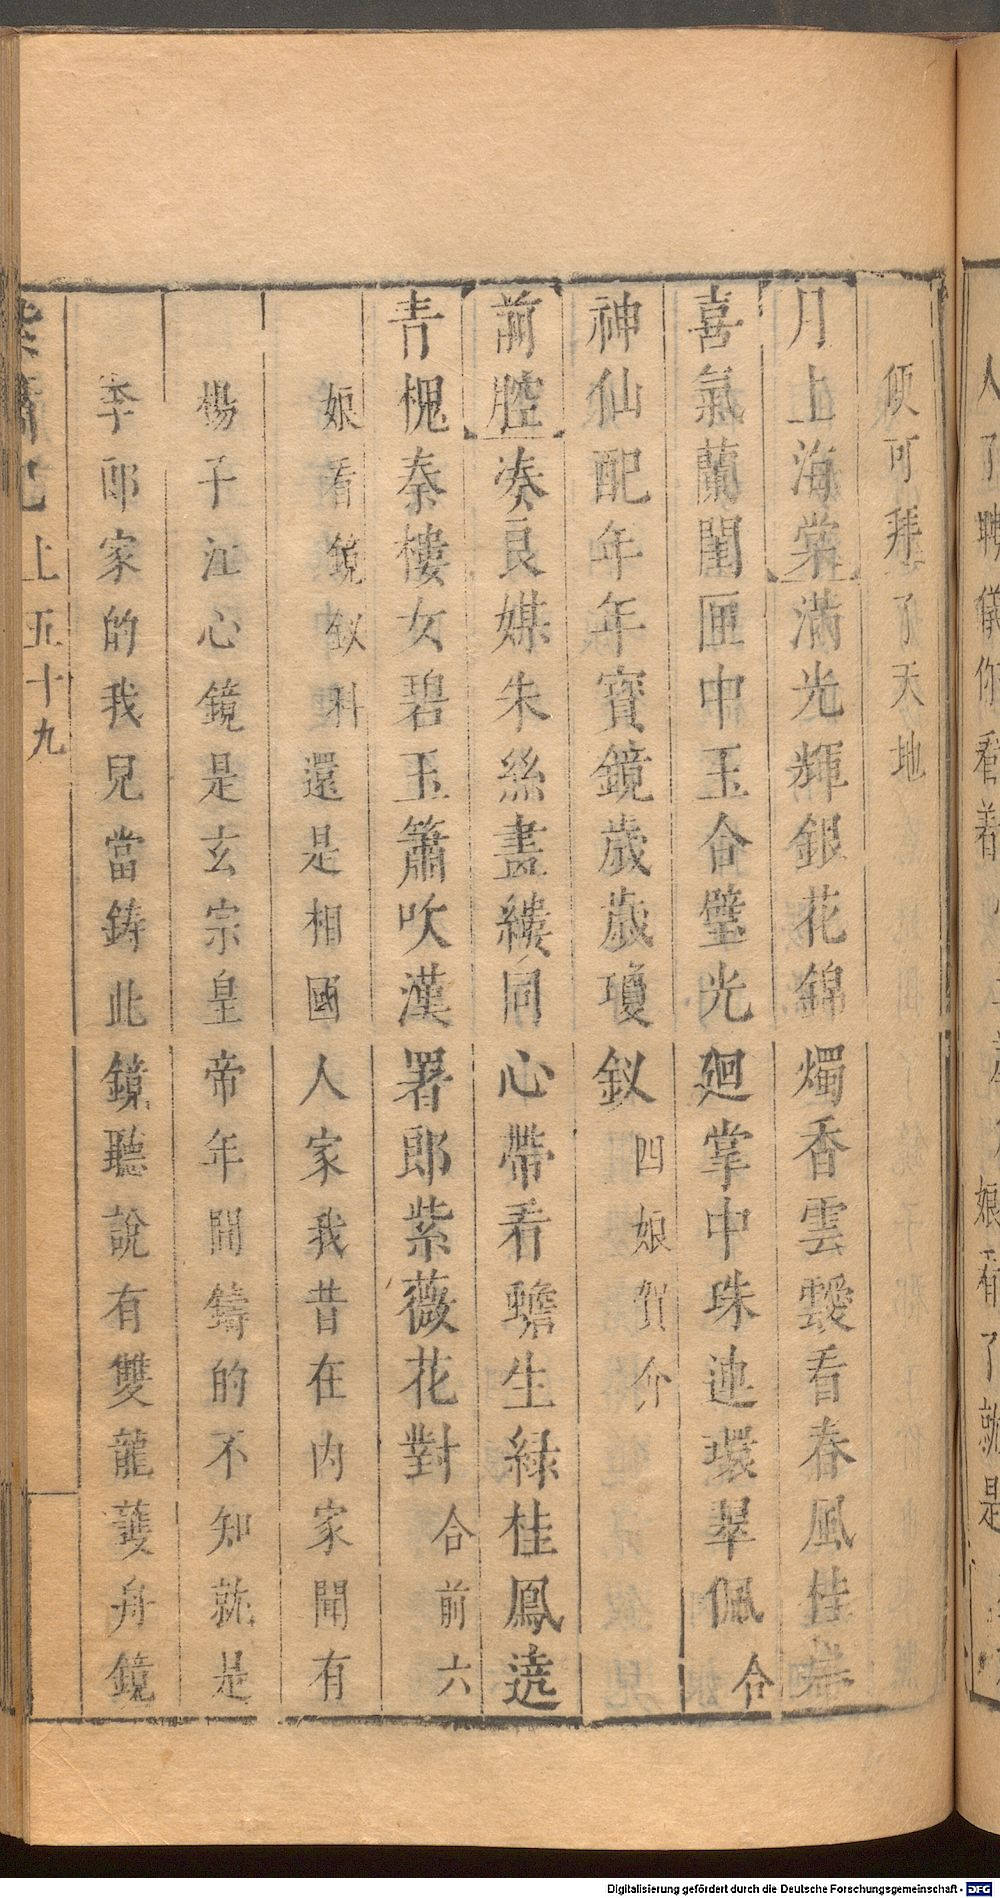 便可拜了天地
月上海棠滿光輝銀花錦燭香雲靉看春風佳
喜氣蘭閨匣中玉合璧光廻掌中珠連環翠佩合
神仙配年年寳鏡歲歲瓊釵四娘賀介
前腔凑良媒朱絲盡縷同心帶看蟾生綠桂鳳遶
青槐秦樓女碧玉簫吹漢署郎紫薇花對合前六
娘看鏡釵科還是相國人家我昔在内家聞有
楊子江心鏡是玄宗皇帝年間鑄的不知就是
李郎家的我兒當鋳此鏡聽說有雙龍䕶舟鏡
紫簫記 上五十九
Digitalisierung gefördert durch die Deutsche Forschungsgemeinschaft - DFG